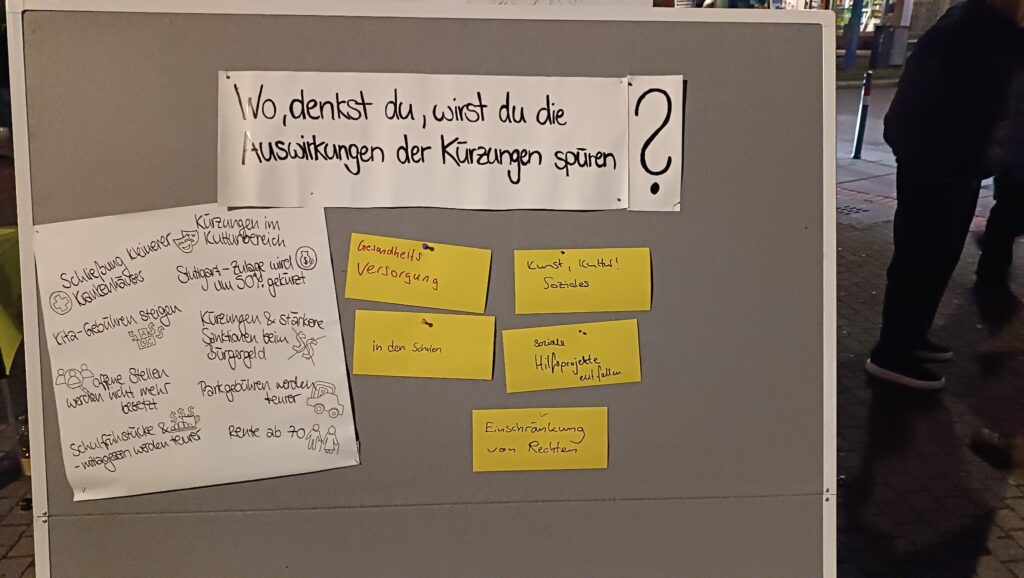 Wo, denkst du, wirst du die
Auswirkungen der Kürzungen spüren ?
Schließung kleinerer
Krankenhäuser
Kürzungen im
Kulturbereich
Stuttgart-Zulage wird
um 50% gekürzt
Kita-Gebühren steigen
Kürzungen & stärkere
Sanktionen beim
Bürgergeld
offene Stellen
werden nicht mehr
besetzt
Parkgebühren werden
teurer
Schulfrühstücke &
-mittagessen werden teurer
Rente ab 70
Gesandheits
Versorgung
Kunst, Kultur!
Soziales
in den Schulen
soziale
Hilfsprojekte
entfallen
Einschränkung
von Rechten